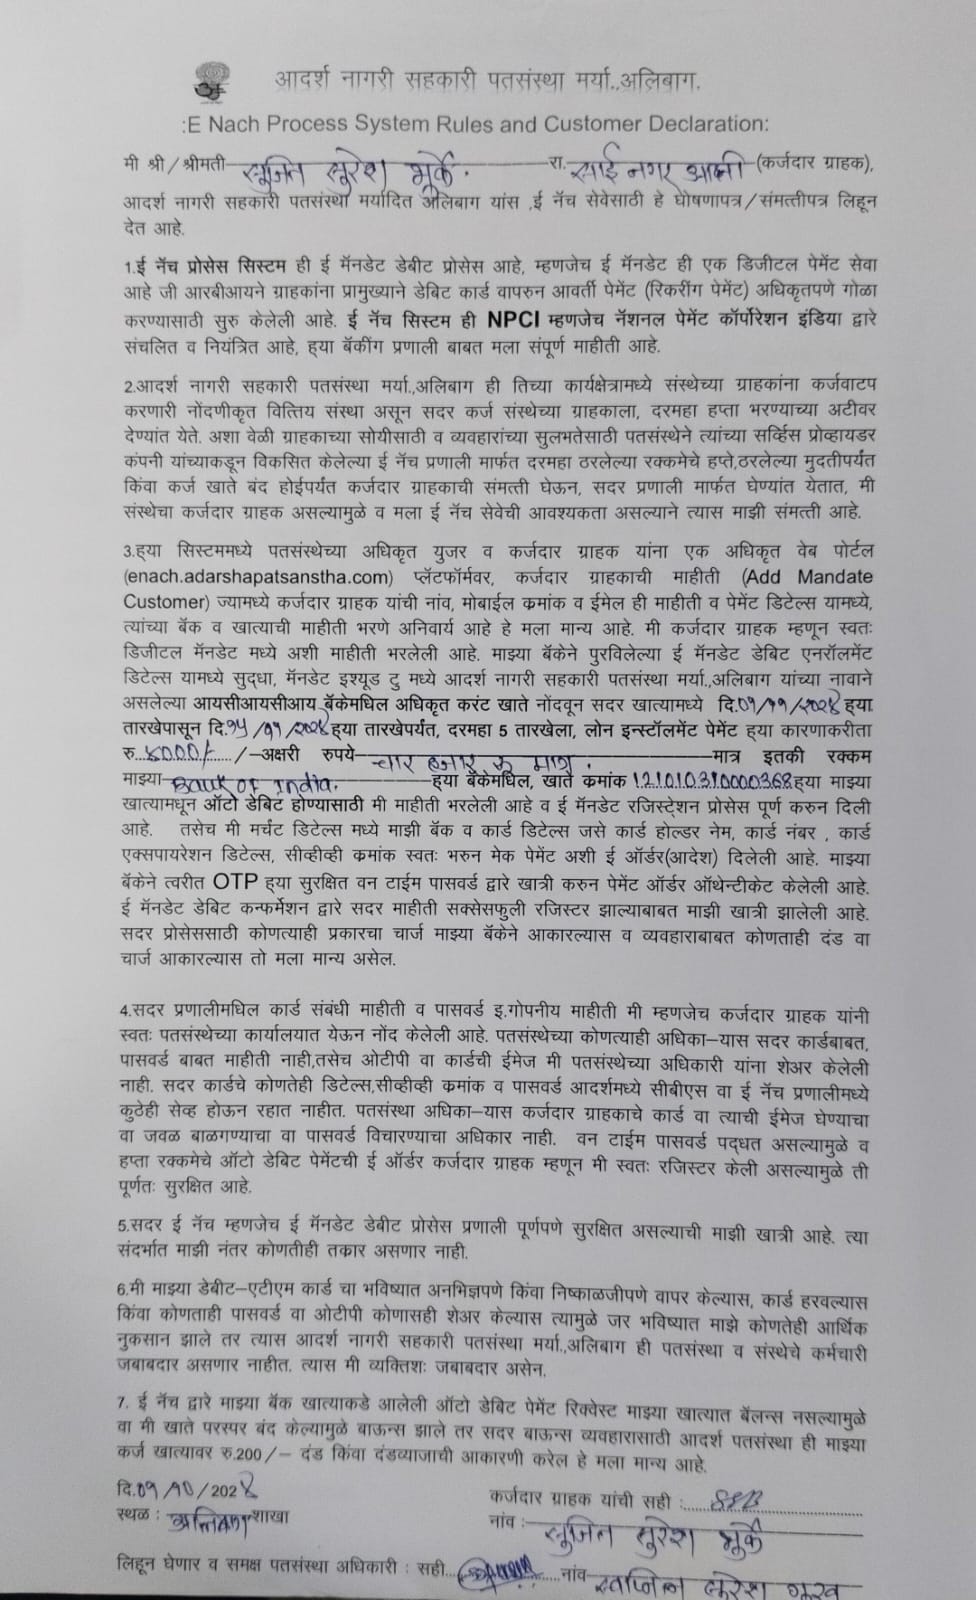 आदर्श नागरी सहकारी पतसंस्था मर्या.,अलिबाग.
:E Nach Process System Rules and Customer Declaration:
मी श्री/श्रीमती सुजित सुरेश भुर्के. रा. साई नगर (कर्जदार ग्राहक),
आदर्श नागरी सहकारी पतसंस्था मर्यादित अलिबाग यांस ,ई नॅच सेवेसाठी हे घोषणापत्र/संमत्तीपत्र लिहून
देत आहे.
1.ई नॅच प्रोसेस सिस्टम ही ई मॅनडेट डेबीट प्रोसेस आहे, म्हणजेच ई मॅनडेट ही एक डिजीटल पेमेंट सेवा
आहे जी आरबीआयने ग्राहकांना प्रामुख्याने डेबिट कार्ड वापरुन आवर्ती पेमेंट (रिकरींग पेमेंट) अधिकृतपणे गोळा
करण्यासाठी सुरु केलेली आहे. ई नॅच सिस्टम ही NPCI म्हणजेच नॅशनल पेमेंट कॉर्पोरेशन इंडिया द्वारे
संचलित व नियंत्रित आहे, ह्या बॅकींग प्रणाली बाबत मला संपूर्ण माहीती आहे.
2.आदर्श नागरी सहकारी पतसंस्था मर्या.,अलिबाग ही तिच्या कार्यक्षेत्रामध्ये संस्थेच्या ग्राहकांना कर्जवाटप
करणारी नोंदणीकृत वित्तिय संस्था असून सदर कर्ज संस्थेच्या ग्राहकाला, दरमहा हप्ता भरण्याच्या अटीवर
देण्यांत येते. अशा वेळी ग्राहकाच्या सोयीसाठी व व्यवहारांच्या सुलभतेसाठी पतसंस्थेने त्यांच्या सर्व्हिस प्रोव्हायडर
कंपनी यांच्याकडून विकसित केलेल्या ई नॅच प्रणाली मार्फत दरमहा ठरलेल्या रक्कमेचे हप्ते,ठरलेल्या मुदतीपर्यंत
किंवा कर्ज खाते बंद होईपर्यंत कर्जदार ग्राहकाची संमत्ती घेऊन, सदर प्रणाली मार्फत घेण्यांत येतात, मी
संस्थेचा कर्जदार ग्राहक असल्यामुळे व मला ई नॅच सेवेची आवश्यकता असल्याने त्यास माझी संमत्ती आहे.
3.ह्या सिस्टममध्ये पतसंस्थेच्या अधिकृत युजर व कर्जदार ग्राहक यांना एक अधिकृत वेब पोर्टल
(enach.adarshapatsanstha.com) प्लॅटफॉर्मवर, कर्जदार ग्राहकाची माहीती (Add Mandate
Customer) ज्यामध्ये कर्जदार ग्राहक यांची नांव, मोबाईल क्रमांक व ईमेल ही माहीती व पेमेंट डिटेल्स यामध्ये,
त्यांच्या बॅक व खात्याची माहीती भरणे अनिवार्य आहे हे मला मान्य आहे. मी कर्जदार ग्राहक म्हणून स्वतः
डिजीटल मॅनडेट मध्ये अशी माहीती भरलेली आहे. माझ्या बॅकेने पुरविलेल्या ई मॅनडेट डेबिट एनरॉलमेंट
डिटेल्स यामध्ये सुद्धा, मॅनडेट इश्यूड टु मध्ये आदर्श नागरी सहकारी पतसंस्था मर्या.,अलिबाग यांच्या नावाने
असलेल्या आयसीआयसीआय बॅकेमधिल अधिकृत करंट खाते नोंदवून सदर खात्यामध्ये दि.०१/११/२०२४ ह्या
तारखेपासून दि.१५/११/२०२८ ह्या तारखेपर्यंत, दरमहा 5 तारखेला, लोन इन्स्टॉलमेंट पेमेंट ह्या कारणाकरीता
रु.४०००/- /-अक्षरी रुपये चार हजार रु मात्र. मात्र इतकी रक्कम
माझ्या Bank of India. ह्या बॅकेमधिल, खाते क्रमांक 121010310000368 ह्या माझ्या
खात्यामधून ऑटो डेबिट होण्यासाठी मी माहीती भरलेली आहे व ई मॅनडेट रजिस्ट्रेशन प्रोसेस पूर्ण करुन दिली
आहे. तसेच मी मर्चंट डिटेल्स मध्ये माझी बॅक व कार्ड डिटेल्स जसे कार्ड होल्डर नेम, कार्ड नंबर , कार्ड
एक्सपायरेशन डिटेल्स, सीव्हीव्ही क्रमांक स्वतः भरुन मेक पेमेंट अशी ई ऑर्डर(आदेश) दिलेली आहे. माझ्या
बॅकेने त्वरीत OTP ह्या सुरक्षित वन टाईम पासवर्ड द्वारे खात्री करुन पेमेंट ऑर्डर ऑथेन्टीकेट केलेली आहे.
ई मॅनडेट डेबिट कन्फर्मेशन द्वारे सदर माहीती सक्सेसफुली रजिस्टर झाल्याबाबत माझी खात्री झालेली आहे.
सदर प्रोसेससाठी कोणत्याही प्रकारचा चार्ज माझ्या बॅकेने आकारल्यास व व्यवहाराबाबत कोणताही दंड वा
चार्ज आकारल्यास तो मला मान्य असेल.
4.सदर प्रणालीमधिल कार्ड संबंधी माहीती व पासवर्ड इ.गोपनीय माहीती मी म्हणजेच कर्जदार ग्राहक यांनी
स्वतः पतसंस्थेच्या कार्यालयात येऊन नोंद केलेली आहे. पतसंस्थेच्या कोणत्याही अधिका–यास सदर कार्डबाबत,
पासवर्ड बाबत माहीती नाही,तसेच ओटीपी वा कार्डची ईमेज मी पतसंस्थेच्या अधिकारी यांना शेअर केलेली
नाही. सदर कार्डचे कोणतेही डिटेल्स,सीव्हीव्ही क्रमांक व पासवर्ड आदर्शमध्ये सीबीएस वा ई नॅच प्रणालीमध्ये
कुठेही सेव्ह होऊन रहात नाहीत. पतसंस्था अधिका–यास कर्जदार ग्राहकाचे कार्ड वा त्याची ईमेज घेण्याचा
वा जवळ बाळगण्याचा वा पासवर्ड विचारण्याचा अधिकार नाही. वन टाईम पासवर्ड पद्धत असल्यामुळे व
हप्ता रक्कमेचे ऑटो डेबिट पेमेंटची ई ऑर्डर कर्जदार ग्राहक म्हणून मी स्वतः रजिस्टर केली असल्यामुळे ती
पूर्णतः सुरक्षित आहे.
5.सदर ई नॅच म्हणजेच ई मॅनडेट डेबीट प्रोसेस प्रणाली पूर्णपणे सुरक्षित असल्याची माझी खात्री आहे. त्या
संदर्भात माझी नंतर कोणतीही तकार असणार नाही.
6.मी माझ्या डेबीट–एटीएम कार्ड चा भविष्यात अनभिज्ञपणे किंवा निष्काळजीपणे वापर केल्यास, कार्ड हरवल्यास
किंवा कोणताही पासवर्ड वा ओटीपी कोणासही शेअर केल्यास त्यामुळे जर भविष्यात माझे कोणतेही आर्थिक
नुकसान झाले तर त्यास आदर्श नागरी सहकारी पतसंस्था मर्या.,अलिबाग ही पतसंस्था व संस्थेचे कर्मचारी
जबाबदार असणार नाहीत. त्यास मी व्यक्तिशः जबाबदार असेन.
7. ई नॅच द्वारे माझ्या बॅक खात्याकडे आलेली ऑटो डेबिट पेमेंट रिक्वेस्ट माझ्या खात्यात बॅलन्स नसल्यामुळे
वा मी खाते परस्पर बंद केल्यामुळे बाऊन्स झाले तर सदर बाऊन्स व्यवहारासाठी आदर्श पतसंस्था ही माझ्या
कर्ज खात्यावर रु.200/– दंड किंवा दंडव्याजाची आकारणी करेल हे मला मान्य आहे.
दि.०१/१०/202४
कर्जदार ग्राहक यांची सही :
स्थळ : अलिबाग शाखा
नांव : सुजित सुरेश भुर्के
लिहून घेणार व समक्ष पतसंस्था अधिकारी : सही नांव स्वप्निल सुरेश